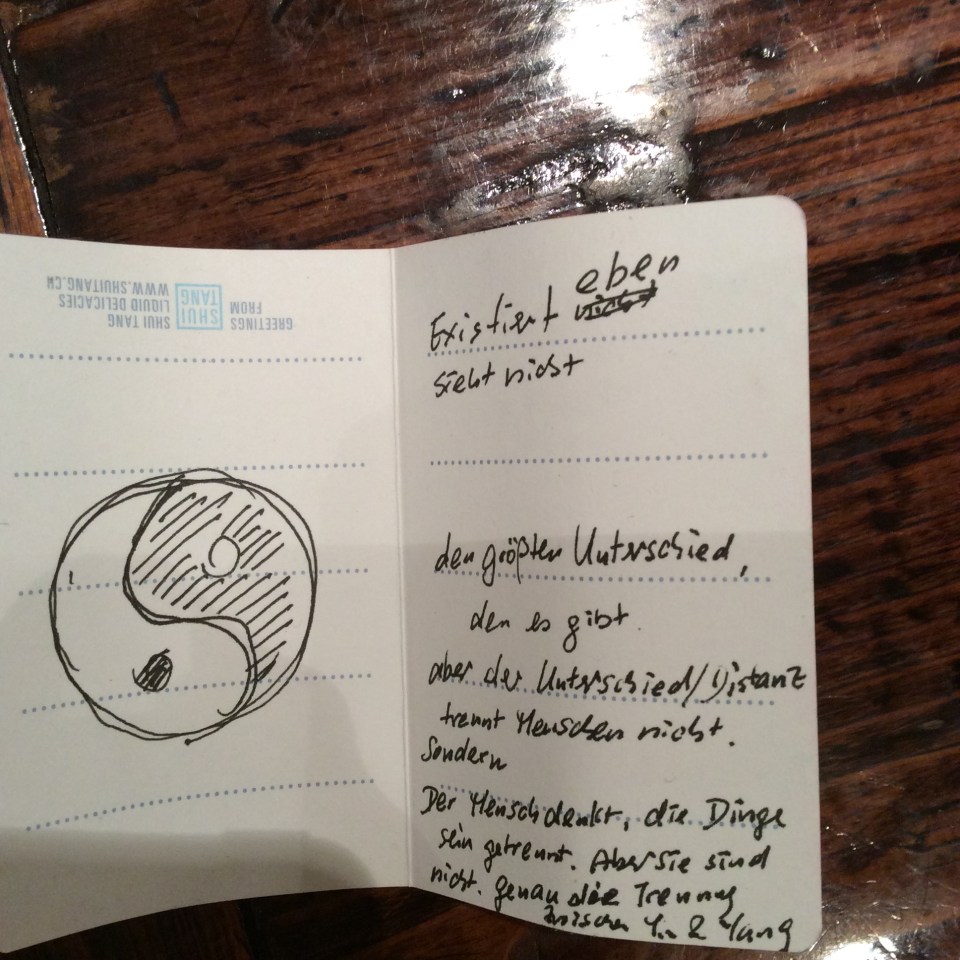 GREETINGS
FROM
SHUI
TANG
SHUI TANG
LIQUID DELICACIES
WWW.SHUITANG.CH
eben
Existiert
sieht nicht
den größten Unterschied,
den es gibt.
aber der Unterschied/Distanz
trennt Menschen nicht.
Sondern
Der Mensch denkt, die Dinge
sein getrennt. Aber sie sind
nicht. genau die Trennung
zwischen Yin & Yang